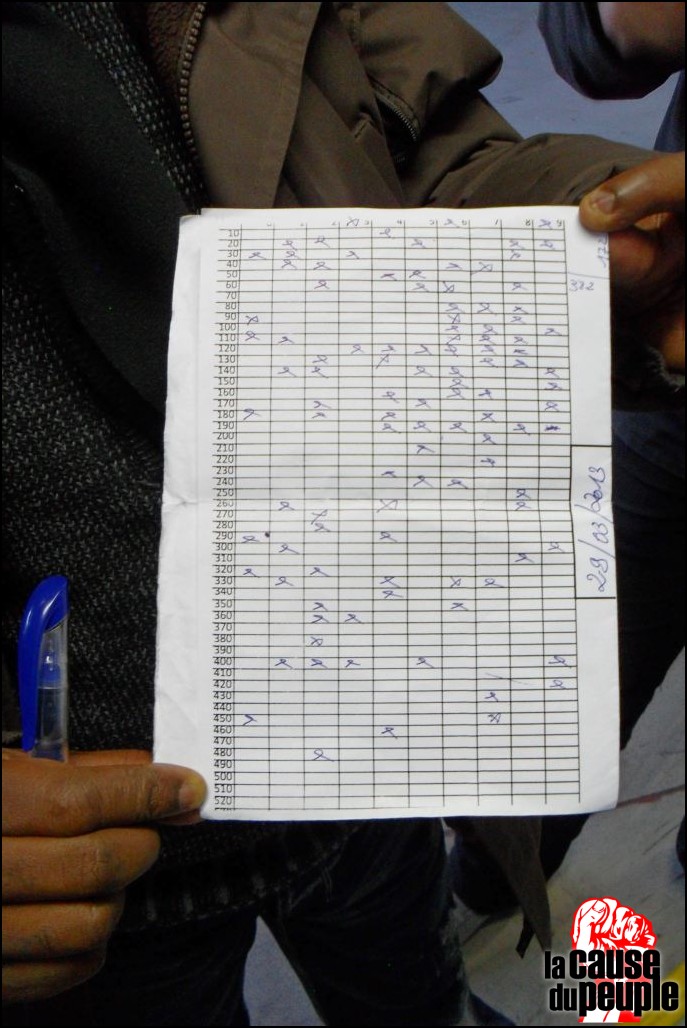 1 2 3 4 5 6 7 8 9
10
20
30
40
50
60
70
80
90
100
110
120
130
140
150
160
170
180
190
200
210
220
230
240
250
260
270
280
290
300
310
320
330
340
350
360
370
380
390
400
410
420
430
440
450
460
470
480
490
500
510
520
29/03/2013
la cause
du peuple